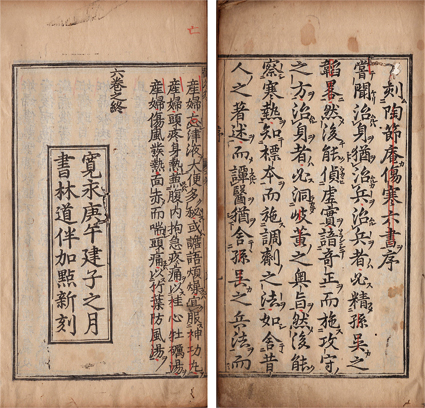 刻陶節庵傷寒六書序
嘗聞治身猶治兵治兵者必精孫吳之
韜畧然後能偵虛實諳奇正而施攻守
之方治身者必洞岐黄之奥旨然後能
察寒熱知標本而施調劑之法如舍昔
人之著述而譚醫猶舍孫吳之兵法而
産婦忘津液大便多秘或譫語煩燥宜服神功丸
産婦頭疼身熱熱腹内拘急疼痛以桂心牡礪湯
産婦傷風發熱面赤而喘頭痛以竹葉防風湯
六卷之終
寛永庚午建子之月
書林道伴加點新刻